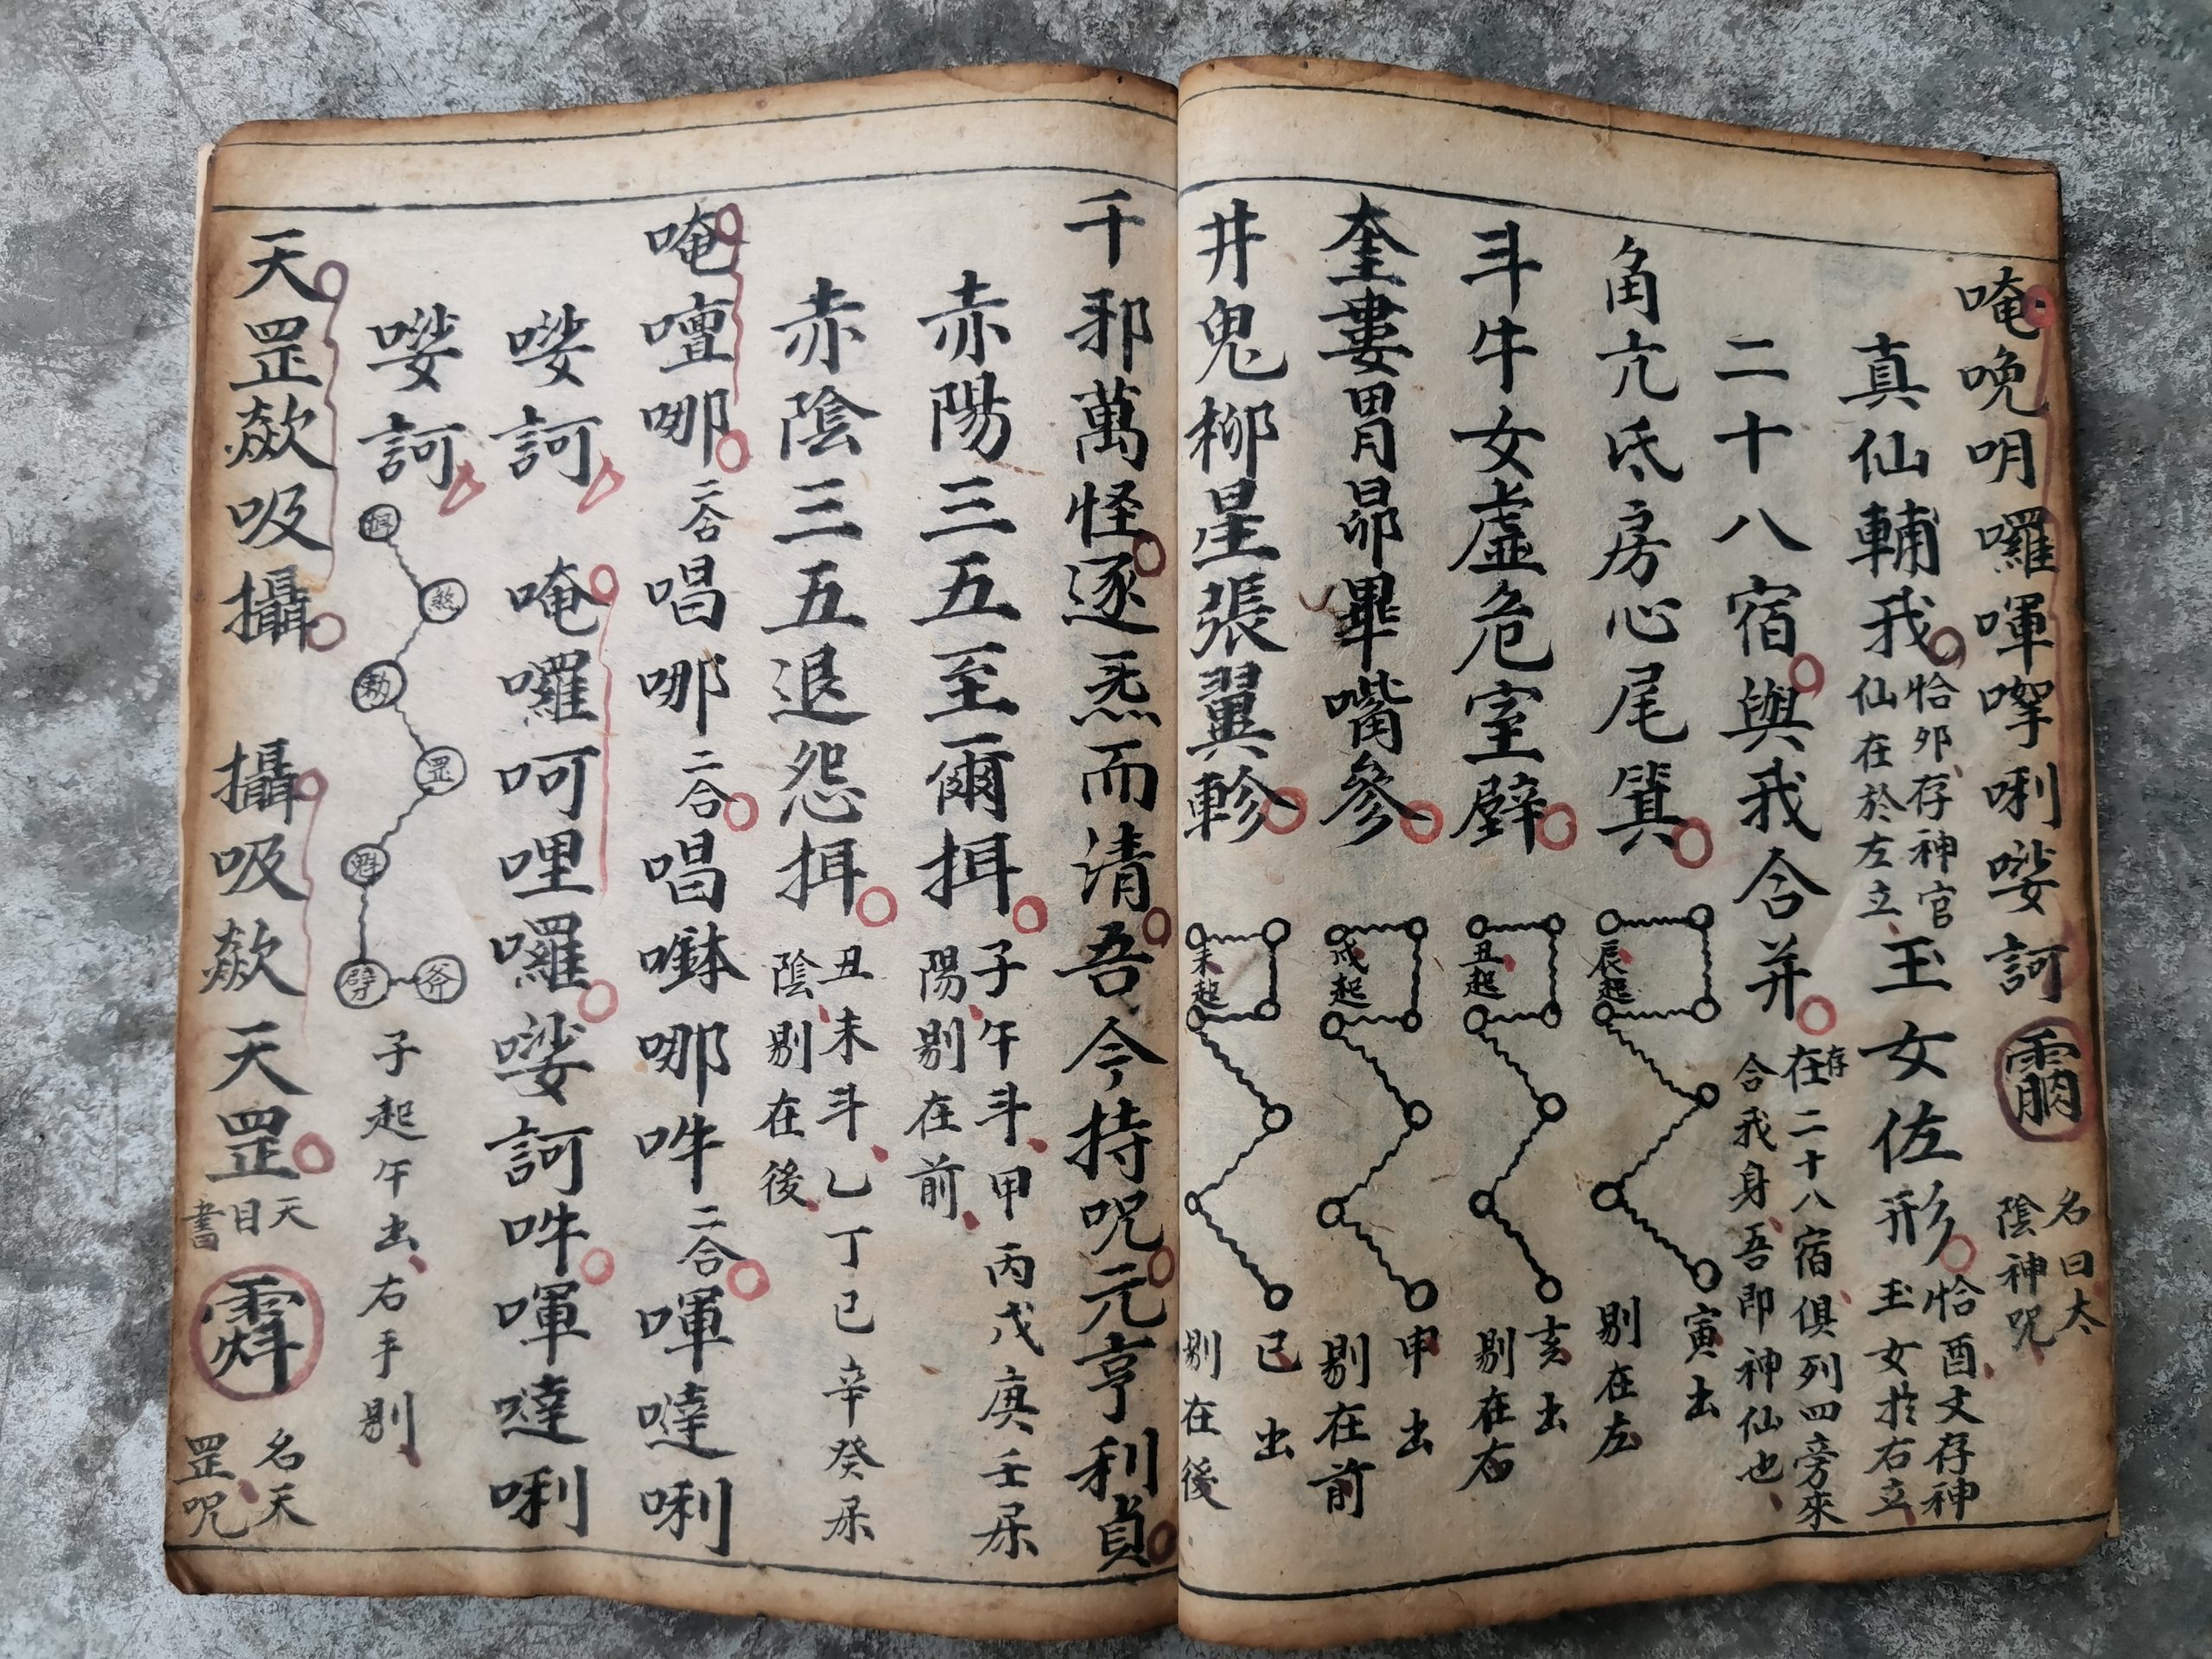 唵㖠明囉㖸㗚唎娑訶
名曰太
陰神咒
真仙輔我
恰卯存神官
仙在於左立
玉女佐形
恰酉文存神
玉女於右立
二十八宿與我合并
存
在二十八宿俱列四旁來
合我身吾即神仙也
角亢氐房心尾箕
辰起
寅出
剔在左
斗牛女虛危室壁
丑起
亥出
剔在右
奎婁胃昴畢嘴參
戌起
申出
剔在前
井鬼柳星張翼軫
未起
巳出
剔在後
千邪萬怪逐炁而清吾今持咒元亨利貞
赤陽三五至爾揖
子午斗甲丙戊庚壬屎
陽剔在前
赤陰三五退怨揖
丑未斗乙丁己辛癸屎
陰剔在後
唵嚪哪二合唱哪二合唱㘄哪吽二合㖸噠唎
娑訶 唵囉呵哩囉娑訶吽㖸噠唎
娑訶
煞
勑
罡
魁
劈
斧
子起午出右手剔
天罡歘吸攝 攝吸歘天罡
天
目
書
名天
罡咒